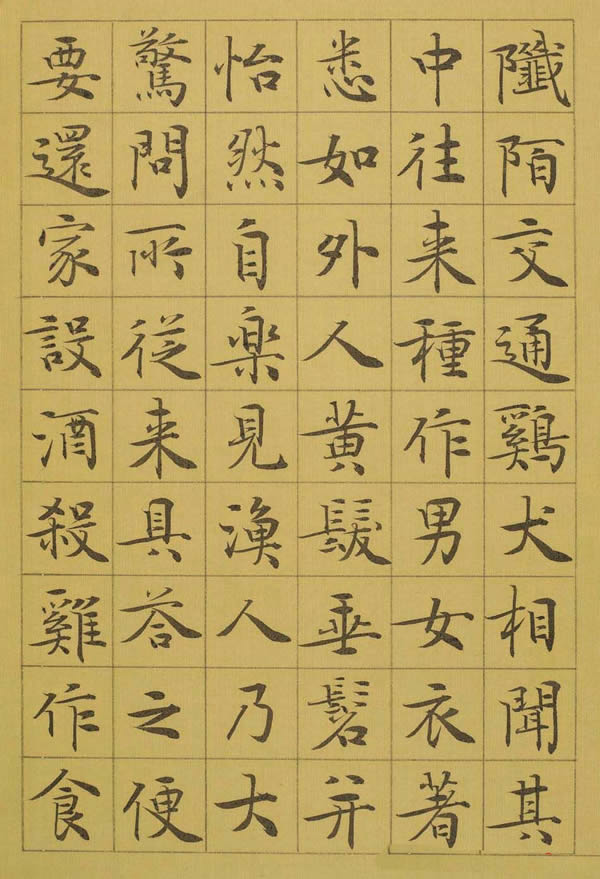 阡陌交通鷄犬相聞其
中往来種作男女衣著
悉如外人黄髮垂髫并
怡然自楽見漁人乃大
驚問所従来具荅之便
要還家設酒殺雞作食